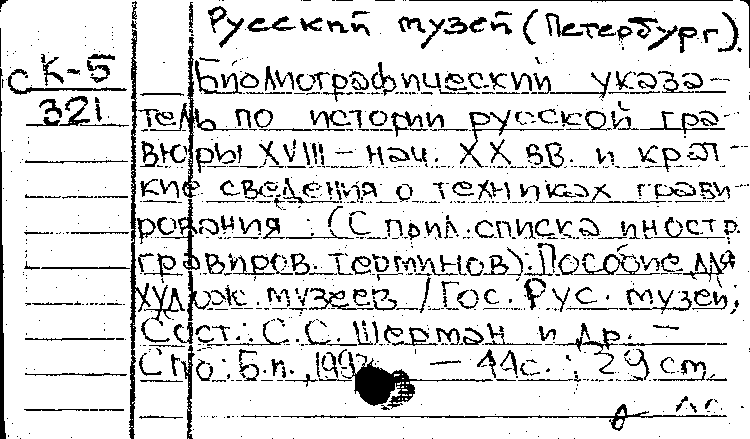 Русский музей (Петербург).
сК-5
321
Библиографический указа-
тель по истории русской гра-
вюры XVIII – нач. XX вв. и крат-
кие сведения о техниках грави-
рования : (С прил. списка иностр.
гравиров. терминов): Пособие для
худож. музеев / Гос. Рус. музей;
Сост.: С.С. Шерман и др. –
Спб: Б.п., – 44с.; 29 cm.